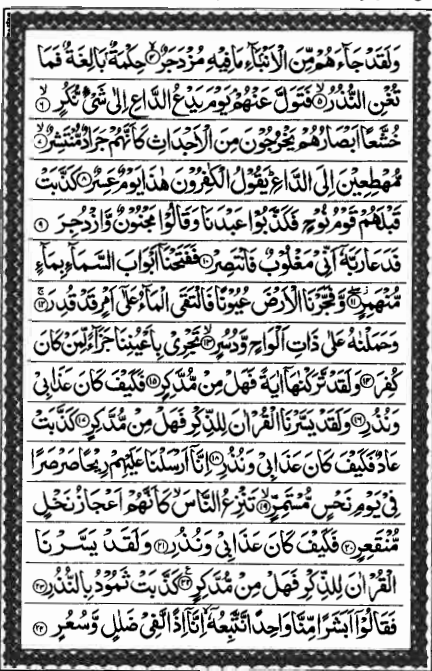 وَلَقَدۡ جَآءَهُمۡ مِّنَ الۡاَنۡۢبَآءِ مَا فِيۡهِ مُزۡدَجَرٌ ۙ‏﴿۴﴾ حِكۡمَةٌۢ بَالِغَةٌ فَمَا
تُغۡنِ النُّذُرُۙ‏﴿۵﴾ فَتَوَلَّ عَنۡهُمۡ‌ۘ يَوۡمَ يَدۡعُ الدَّاعِ اِلٰى شَىۡءٍ نُّكُرٍۙ‏﴿۶﴾
خُشَّعًا اَبۡصَارُهُمۡ يَخۡرُجُوۡنَ مِنَ الۡاَجۡدَاثِ كَاَنَّهُمۡ جَرَادٌ مُّنۡتَشِرٌۙ‏﴿۷﴾
مُّهۡطِعِيۡنَ اِلَى الدَّاعِ‌ؕ يَقُوۡلُ الۡكٰفِرُوۡنَ هٰذَا يَوۡمٌ عَسِرٌ‏﴿۸﴾ كَذَّبَتۡ
قَبۡلَهُمۡ قَوۡمُ نُوۡحٍ فَكَذَّبُوۡا عَبۡدَنَا وَقَالُوۡا مَجۡنُوۡنٌ وَّازۡدُجِرَ‏﴿۹﴾
فَدَعَا رَبَّهٗۤ اَنِّىۡ مَغۡلُوۡبٌ فَانْتَصِرۡ‏﴿۱۰﴾ فَفَتَحۡنَاۤ اَبۡوَابَ السَّمَآءِ بِمَآءٍ
مُّنۡهَمِرٍۖ‏﴿۱۱﴾ وَّفَجَّرۡنَا الۡاَرۡضَ عُيُوۡنًا فَالۡتَقَى الۡمَآءُ عَلٰٓى اَمۡرٍ قَدۡ قُدِرَ‌ۚ‏﴿۱۲﴾
وَحَمَلۡنٰهُ عَلٰى ذَاتِ اَلۡوَاحٍ وَّدُسُرٍۙ‏﴿۱۳﴾ تَجۡرِىۡ بِاَعۡيُنِنَا‌ۚ جَزَآءً لِّمَنۡ كَانَ
كُفِرَ‏﴿۱۴﴾ وَلَقَدْ تَّرَكۡنٰهَاۤ اٰيَةً فَهَلۡ مِنۡ مُّدَّكِرٍ‏﴿۱۵﴾ فَكَيۡفَ كَانَ عَذَابِىۡ
وَنُذُرِ‏﴿۱۶﴾ وَلَقَدۡ يَسَّرۡنَا الۡقُرۡاٰنَ لِلذِّكۡرِ فَهَلۡ مِنۡ مُّدَّكِرٍ‏﴿۱۷﴾ كَذَّبَتۡ
عَادٌ فَكَيۡفَ كَانَ عَذَابِىۡ وَنُذُرِ‏﴿۱۸﴾ اِنَّاۤ اَرۡسَلۡنَا عَلَيۡهِمۡ رِيۡحًا صَرۡصَرًا
فِىۡ يَوۡمِ نَحۡسٍ مُّسۡتَمِرٍّۙ‏﴿۱۹﴾ تَنۡزِعُ النَّاسَۙ كَاَنَّهُمۡ اَعۡجَازُ نَخۡلٍ
مُّنۡقَعِرٍ‏﴿۲۰﴾ فَكَيۡفَ كَانَ عَذَابِىۡ وَنُذُرِ‏﴿۲۱﴾ وَلَقَدۡ يَسَّرۡنَا
الۡقُرۡاٰنَ لِلذِّكۡرِ فَهَلۡ مِنۡ مُّدَّكِرٍ‏﴿۲۲﴾ كَذَّبَتۡ ثَمُوۡدُ بِالنُّذُرِ‏﴿۲۳﴾
فَقَالُوۡۤا اَبَشَرًا مِّنَّا وَاحِدًا نَّتَّبِعُهٗۤ ۙ اِنَّاۤ اِذًا لَّفِىۡ ضَلٰلٍ وَّسُعُرٍ‏﴿۲۴﴾